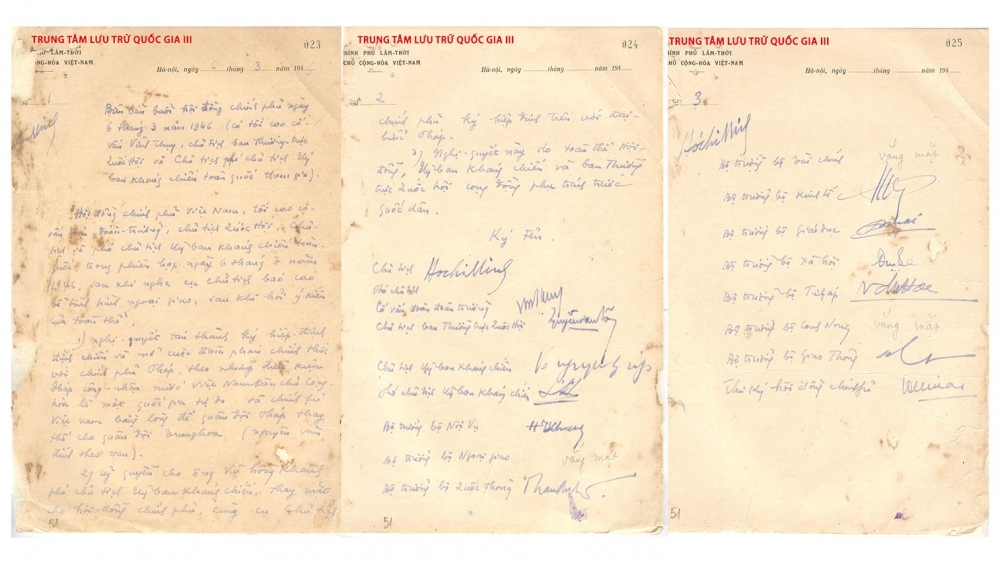 TRUNG TÂM LƯU TRỮ QUỐC GIA III
023
PHỦ LÂM-THỜI
CỘNG-HÒA VIỆT-NAM
Hà-nội, ngày 6 tháng 3 năm 194
Số 1
Biên bản buổi hội đồng chính phủ ngày
6 tháng 3 năm 1946 (có tối cao cố-
vấn Vĩnh Thụy, Chủ tịch ban Thường-trực
Quốc Hội và Chủ tịch phó chủ tịch Uỷ
ban kháng chiến toàn quốc tham gia).
Hội đồng chính phủ Việt Nam, tối cao cố-
vấn đoàn đoàn-trưởng, chủ tịch Quốc Hội, Chủ-
tịch và phó chủ tịch Uỷ ban kháng chiến toàn-
quốc, trong phiên họp ngày 6 tháng 3 năm
1946, sau khi nghe cụ chủ tịch báo cáo
về tình hình ngoại giao, sau khi hỏi ý kiến
của toàn thể,
1) nghị-quyết tán thành ký hiệp định
đình chiến và mở cuộc đàm phán chính thức
với chính phủ Pháp, theo những điều kiện
Pháp công-nhận nước Việt Nam Dân chủ Cộng-
hòa là một quốc gia tự do và chính phủ
Việt nam bằng lòng để quân đội Pháp thay
thế cho quân đội Trung hoa (nguyên văn
đính theo sau).
2) uỷ quyền cho ông Vũ Hồng Khanh
phó chủ tịch Uỷ ban kháng chiến, thay mặt
cho hội-đồng chính phủ, cùng cụ Chủ tịch
51
TRUNG TÂM LƯU TRỮ QUỐC GIA III
024
CHÍNH PHỦ LÂM-THỜI
CHỦ CỘNG-HÒA VIỆT-NAM
Hà-nội, ngày tháng năm 194
Số 2
chính phủ ký hiệp định trên với đại-
biểu Pháp.
3) Nghị-quyết này do toàn thể Hội-
đồng, Uỷ ban kháng chiến và ban Thường
trực Quốc hội cộng đồng phụ trách trước
quốc dân.
Ký tên,
Chủ tịch Hochiminh
Phó chủ tịch
Cố vấn đoàn đoàn trưởng
Chủ tịch ban Thường trực Quốc Hội Nguyễn văn Tố
Chủ tịch Uỷ ban kháng chiến Vo nguyen Giap
Phó chủ tịch Uỷ ban kháng chiến
Bộ trưởng bộ Nội Vụ
Bộ trưởng bộ Ngoại giao vắng mặt
Bộ trưởng bộ Quốc Phòng
51
TRUNG TÂM LƯU TRỮ QUỐC GIA III
025
CHÍNH PHỦ LÂM-THỜI
CHỦ CỘNG-HÒA VIỆT-NAM
Hà-nội, ngày tháng năm 194
Số 3
Hồ chí Minh
Bộ trưởng bộ tài chính vắng mặt
Bộ trưởng bộ Kinh tế
Bộ trưởng bộ giáo dục
Bộ trưởng bộ xã hội
Bộ trưởng bộ Tư pháp
Bộ trưởng bộ Canh Nông vắng mặt
Bộ trưởng bộ Giao Thông
Thư ký hội đồng chính phủ
51